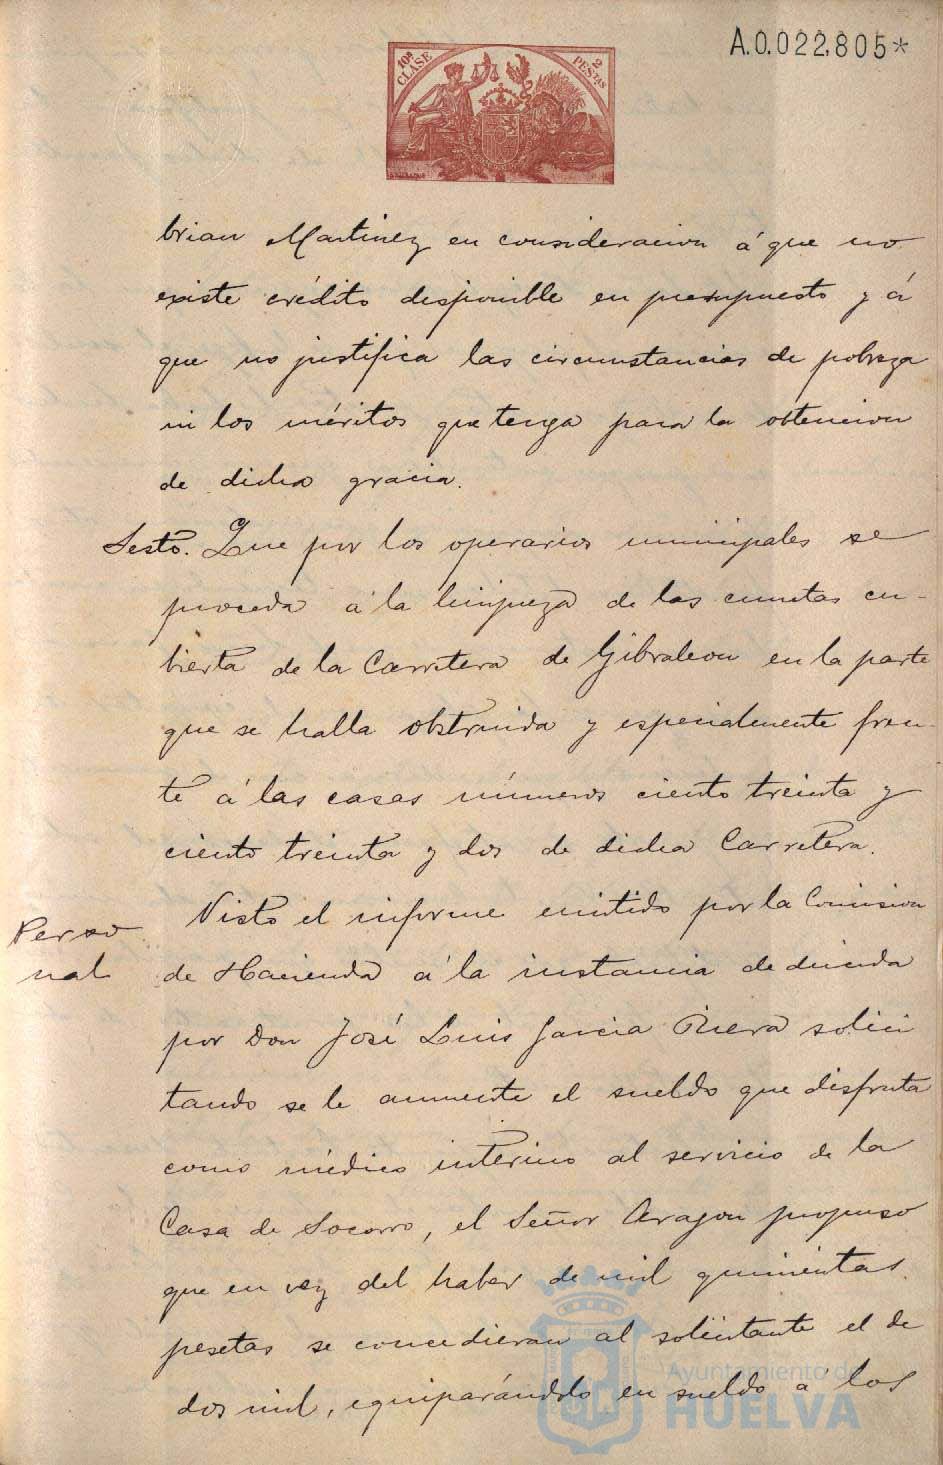 A.0.022,805*
10ª CLASE
2 PESTAS
brian Martinez en consideracion á que no
existe crédito disponible en presupuesto y á
que no justifica las circunstancias de pobreza
ni los méritos que tenga para la obtencion
de dicha gracia.
Sesto. Que por los operarios municipales se
proceda á la limpieza de las cunetas cu-
bierta de la Carretera de Gibraleon en la parte
que se halla obstruida y especialmente fren-
te á las casas números ciento treinta y
ciento treinta y dos de dicha Carretera.
Perso
nal
Visto el informe emitido por la Comision
de Hacienda á la instancia deducida
por Don José Luis Garcia Riera solici
tando se le aumente el sueldo que disfruta
como médico interino al servicio de la
Casa de Socorro, el Señor Aragon propuso
que en vez del haber de mil quinientas
pesetas se concedieran al solicitante el de
dos mil, equiparándolo en sueldo á los
Ayuntamiento de
HUELVA